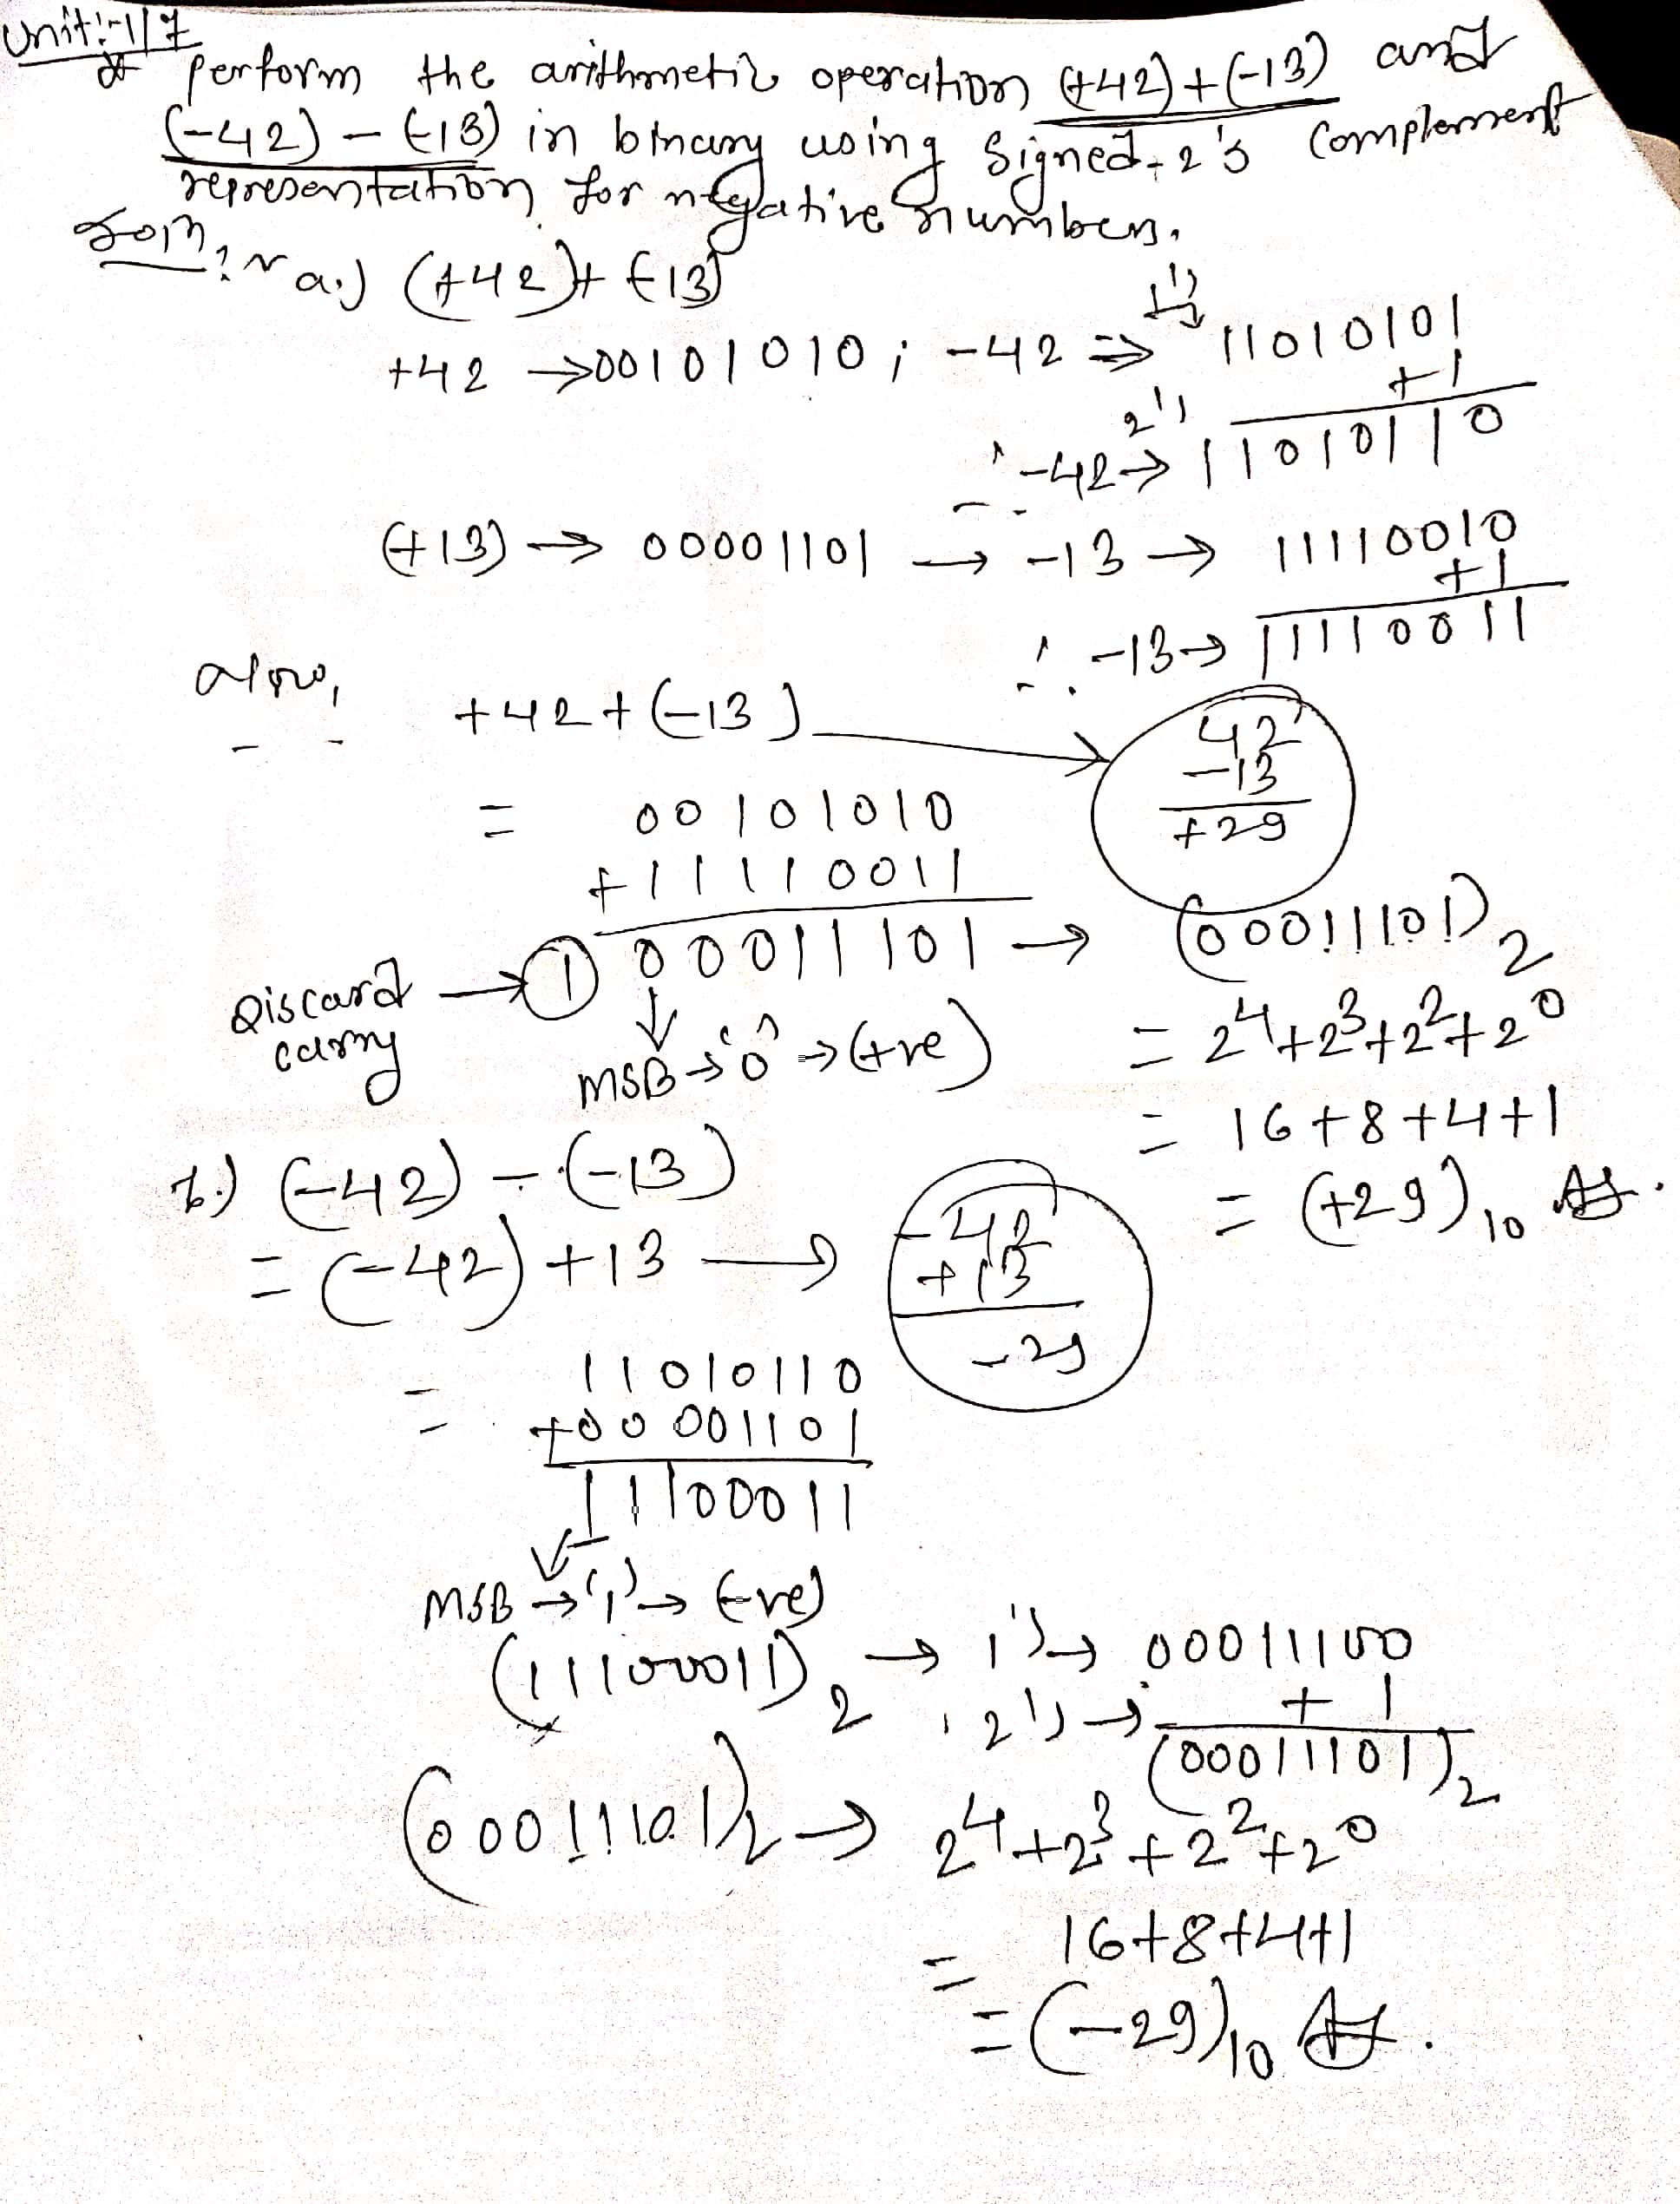 Unit:-1/7
* perform the arithmetic operation (+42)+(-13) and
(-42) - (-13) in binary using signed-2's complement
representation for negative numbers.
Soln:~ a.) (+42)+(-13)
+42 → 00101010 ; -42 ⇒ 1's 11010101
+1
∴ -42 → 2's 11010110
(+13) → 00001101 → -13 → 11110010
+1
∴ -13 → 11110011
Now,
+42+(-13)
42
-13
+29
= 00101010
+11110011
Discard carry → 1 00011101 → (00011101)2
MSB → '0' → (+ve)
= 2^4+2^3+2^2+2^0
= 16+8+4+1
= (+29)10 As.
b.) (-42) - (-13)
= (-42)+13 →
-42
+13
-29
= 11010110
+00001101
11100011
MSB → '1' → (-ve)
(11100011)2 → 1's → 00011100
, 2's → + 1
(00011101)2
(00011101)2 → 2^4+2^3+2^2+2^0
= 16+8+4+1
= (-29)10 As.